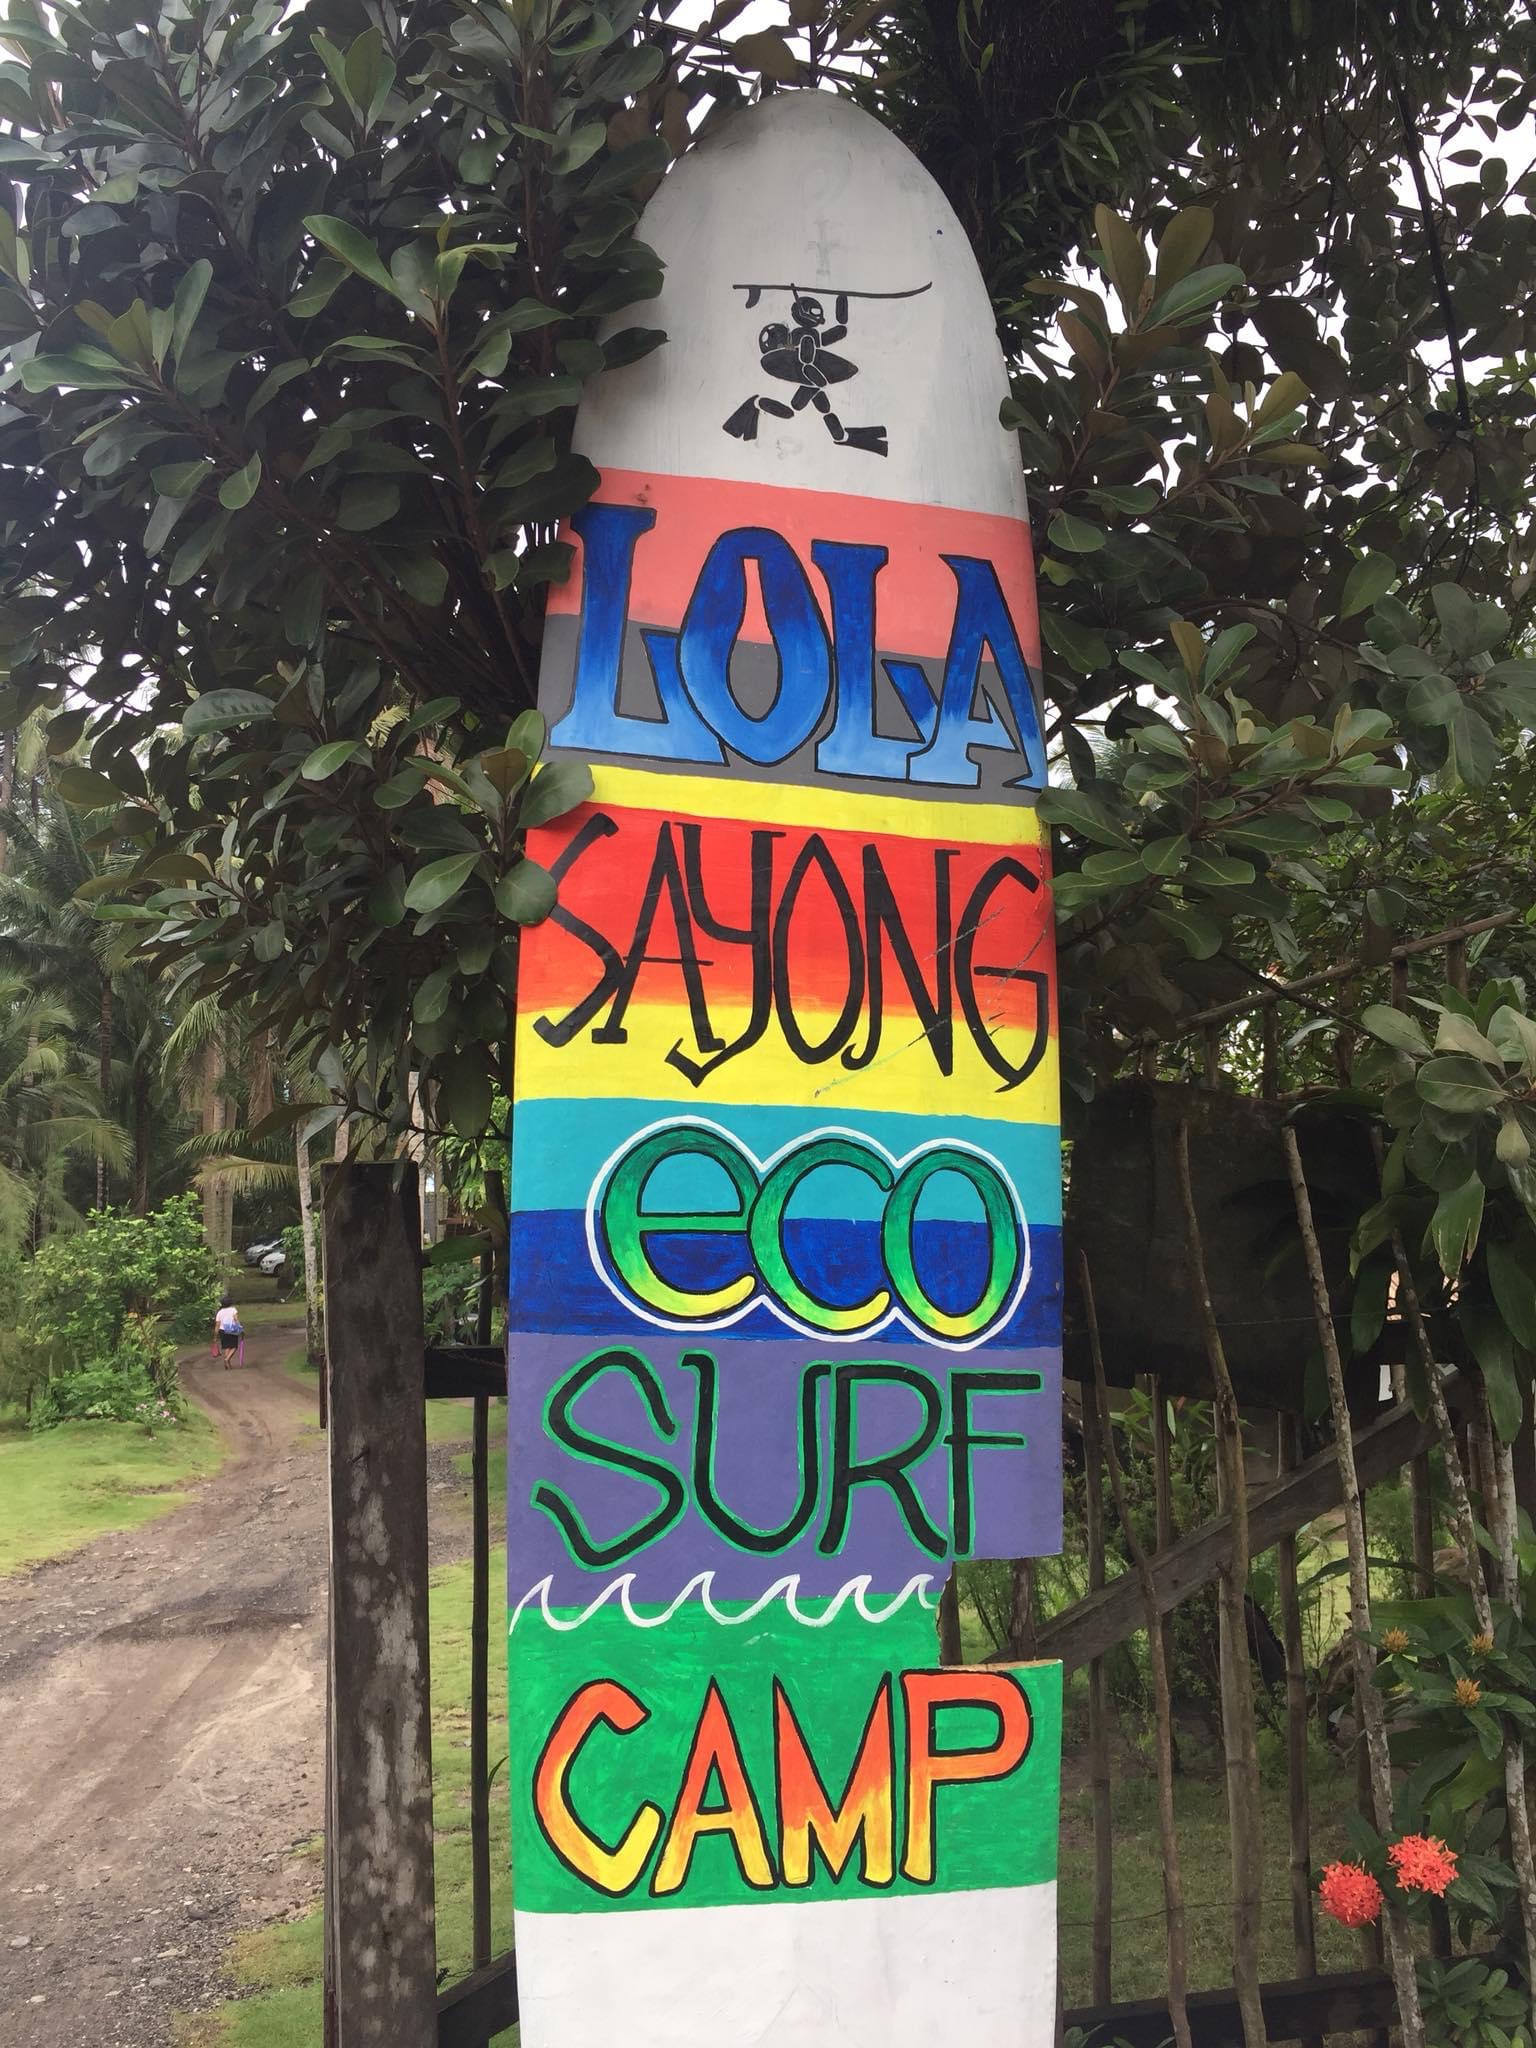 LOLA
SAYONG
eco
SURF
CAMP